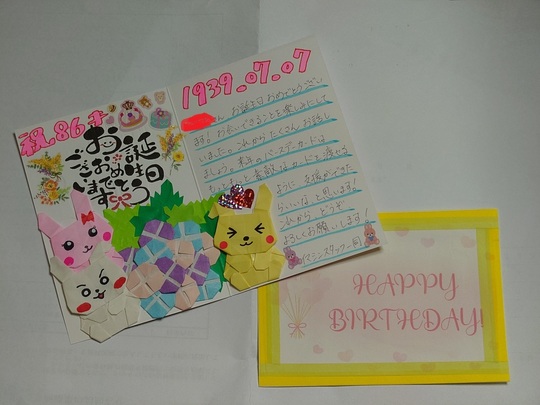 祝86才
お誕生日
おめでとう
ございます
1939.07.07
ん お誕生日おめでとうござい
ます！お会いできることを楽しみにして
いました。これからたくさんお話し
しましょう。来年のバースデーカードは
もっともっと素敵なカードを渡せる
ように 支援ができた
らいいなと思います！
これから どうぞ
よろしくお願いします！
スタッフ一同
HAPPY
BIRTHDAY!